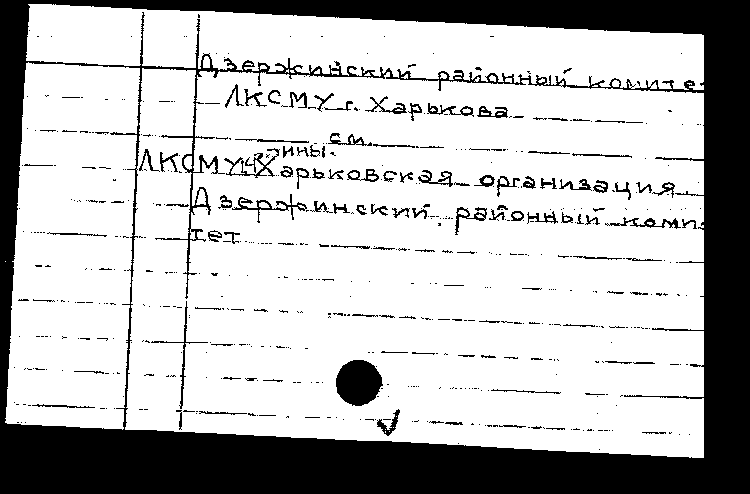 Дзержинский районный комите
ЛКСМУ г. Харькова
см.
ЛКСМУ Харьковская организация.
Дзержинский районный коми
тет